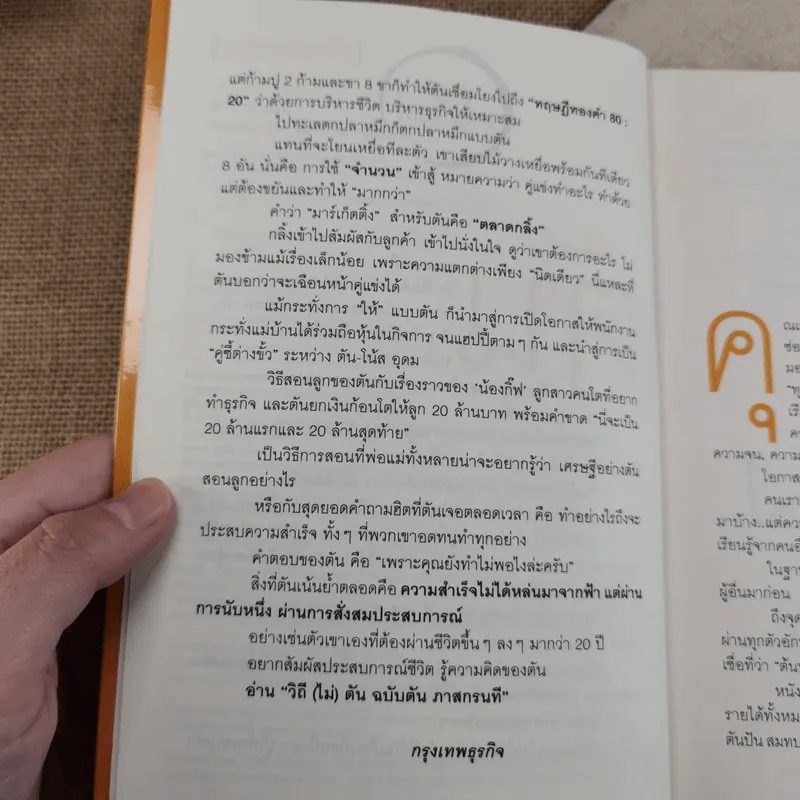 แต่ก้ามปู 2 ก้ามและขา 8 ขาก็ทำให้ตันเชื่อมโยงไปถึง “ทฤษฎีทองคำ 80 :
20” ว่าด้วยการบริหารชีวิต บริหารธุรกิจให้เหมาะสม
ไปทะเลตกปลาหมึกก็ตกปลาหมึกแบบตัน
แทนที่จะโยนเหยื่อทีละตัว เขาเสียบไม้วางเหยื่อพร้อมกันทีเดียว
8 อัน นั่นคือ การใช้ “จำนวน” เข้าสู้ หมายความว่า คู่แข่งทำอะไร ทำด้วย
แต่ต้องขยันและทำให้ “มากกว่า”
คำว่า “มาร์เก็ตติ้ง” สำหรับตันคือ “ตลาดกลิ้ง”
กลิ้งเข้าไปสัมผัสกับลูกค้า เข้าไปนั่งในใจ ดูว่าเขาต้องการอะไร ไม่
มองข้ามแม้เรื่องเล็กน้อย เพราะความแตกต่างเพียง “นิดเดียว” นี่แหละที่
ตันบอกว่าจะเฉือนหน้าคู่แข่งได้
แม้กระทั่งการ “ให้” แบบตัน ก็นำมาสู่การเปิดโอกาสให้พนักงาน
กระทั่งแม่บ้านได้ร่วมถือหุ้นในกิจการ จนแฮปปี้ตามๆ กัน และนำสู่การเป็น
“คู่ซี้ต่างขั้ว” ระหว่าง ตัน-โน้ส อุดม
วิธีสอนลูกของตันกับเรื่องราวของ ‘น้องกิ๊ฟ’ ลูกสาวคนโตที่อยาก
ทำธุรกิจ และตันยกเงินก้อนโตให้ลูก 20 ล้านบาท พร้อมคำขาด “นี่จะเป็น
20 ล้านแรกและ 20 ล้านสุดท้าย”
เป็นวิธีการสอนที่พ่อแม่ทั้งหลายน่าจะอยากรู้ว่า เศรษฐีอย่างตัน
สอนลูกอย่างไร
หรือกับสุดยอดคำถามฮิตที่ตันเจอตลอดเวลา คือ ทำอย่างไรถึงจะ
ประสบความสำเร็จ ทั้งๆ ที่พวกเขาอดทนทำทุกอย่าง
คำตอบของตัน คือ “เพราะคุณยังทำไม่พอไงล่ะครับ”
สิ่งที่ตันเน้นย้ำตลอดคือ ความสำเร็จไม่ได้หล่นมาจากฟ้า แต่ผ่าน
การนับหนึ่ง ผ่านการสั่งสมประสบการณ์
อย่างเช่นตัวเขาเองที่ต้องผ่านชีวิตขึ้นๆ ลงๆ มากว่า 20 ปี
อยากสัมผัสประสบการณ์ชีวิต รู้ความคิดของตัน
อ่าน “วิถี (ไม่) ตัน ฉบับตัน ภาสกรนที”
กรุงเทพธุรกิจ
คุ
ความจน, ความ
โอกาส
คนเรา
มาบ้าง..แต่คว
เรียนรู้จากคนอื่
ในฐาน
ผู้อื่นมาก่อน
ถึงจุด
ผ่านทุกตัวอัก
เชื่อที่ว่า “ต้น
หนัง
รายได้ทั้งหม
ตันปัน สมทบ